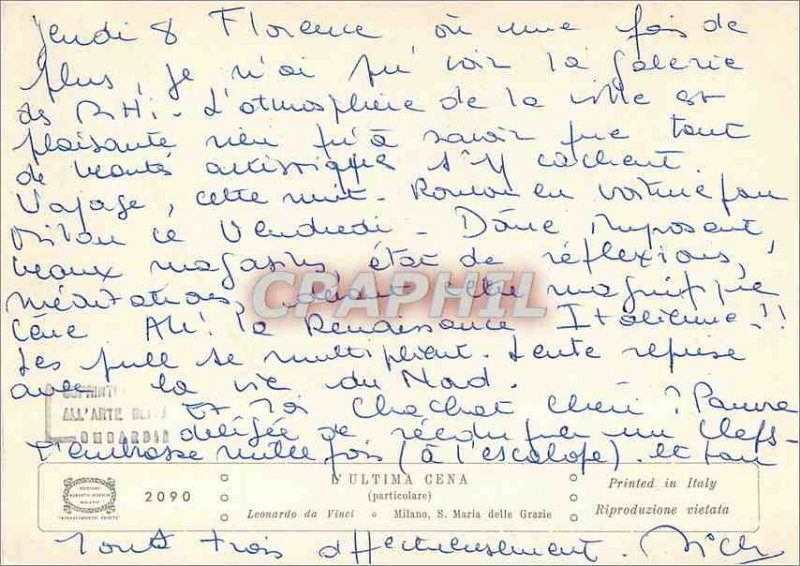 Jeudi 8 Florence où une fois de
plus, je n'ai pu voir la Galerie
des L'atmosphère de la ville est
plaisante rien qu'à savoir que tant
de beautés artistiques s'y cachent.
Voyage, cette nuit. Roman en voiture pour
Milan ce Vendredi - Dôme imposant
beaux magasins, état de réflexions,
méditations, devant cette magnifique
Cène Ah! la Renaissance Italienne!!
Les pull se multiplient. Lente reprise
avec la vie du Nord.
Et toi Chachat chéri? Pauvre
obligée de
T'embrasse mille fois (à l'escalope). et
tous trois affectueusement.
CPARHIL
ALL'ARTE
LOMBARDIA
2090
L'ULTIMA CENA
(particolare)
Leonardo da Vinci ° Milano, S. Maria delle Grazie
Printed in Italy
Riproduzione vietata